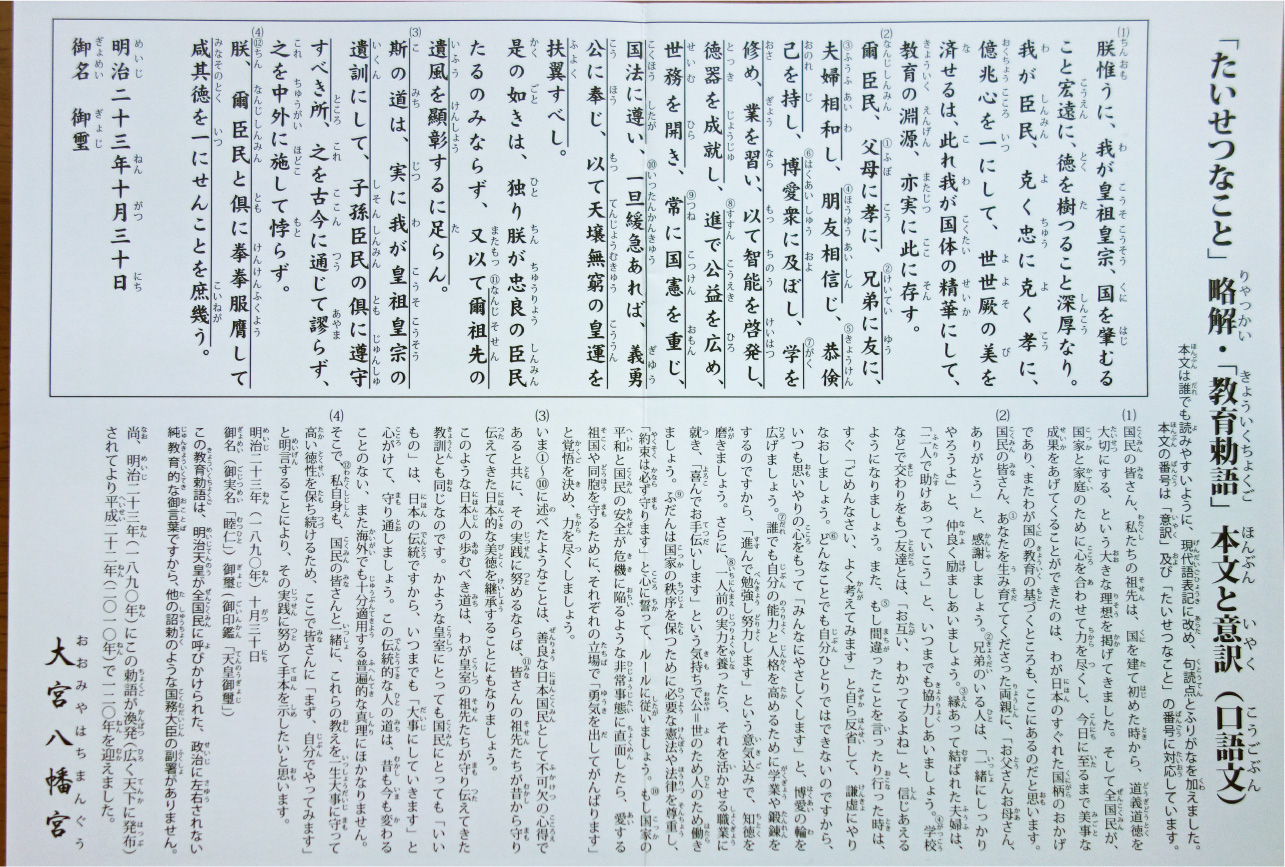 「たいせつなこと」略解・「教育勅語」本文と意訳（口語文）
本文は誰でも読みやすいように、現代語表記に改め、句読点とふりがなを加えました。
本文の番号は「意訳」及び「たいせつなこと」の番号に対応しています。
(1)朕惟うに、我が皇祖皇宗、国を肇むる
こと宏遠に、徳を樹つること深厚なり。
我が臣民、克く忠に克く孝に、
億兆心を一にして、世世厥の美を
済せるは、此れ我が国体の精華にして、
教育の淵源、亦実に此に存す。
(2)爾臣民、①父母に孝に、②兄弟に友に、
③夫婦相和し、④朋友相信じ、⑤恭倹
己を持し、⑥博愛衆に及ぼし、⑦学を
修め、業を習い、以て智能を啓発し、
徳器を成就し、⑧進で公益を広め、
世務を開き、⑨常に国憲を重じ、
国法に遵い、⑩一旦緩急あれば、義勇
公に奉じ、以て天壌無窮の皇運を
扶翼すべし。
是の如きは、独り朕が忠良の臣民
たるのみならず、又以て⑪爾祖先の
遺風を顕彰するに足らん。
(3)斯の道は、実に我が皇祖皇宗の
遺訓にして、子孫臣民の倶に遵守
すべき所、之を古今に通じて謬らず、
之を中外に施して悖らず。
(4)⑫朕、爾臣民と倶に拳拳服膺して
咸其徳を一にせんことを庶幾う。
明治二十三年十月三十日
御名　御璽
(1)国民の皆さん、私たちの祖先は、国を建て初めた時から、道義道徳を
大切にする、という大きな理想を掲げてきました。そして全国民が、
国家と家庭のために心を合わせて力を尽くし、今日に至るまで美事な
成果をあげてくることができたのは、わが日本のすぐれた国柄のおかげ
であり、またわが国の教育の基づくところも、ここにあるのだと思います。
(2)国民の皆さん、①あなたを生み育ててくださった両親に、「お父さんお母さん、
ありがとう」と、感謝しましょう。②兄弟のいる人は、「一緒にしっかり
やろうよ」と、仲良く励ましあいましょう。③縁あって結ばれた夫婦は、
「二人で助けあっていこう」と、いつまでも協力しあいましょう。④学校
などで交わりをもつ友達とは、「お互い、わかってるよね」と、信じあえる
ようになりましょう。また、⑤もし間違ったことを言ったり行った時は、
すぐ「ごめんなさい、よく考えてみます」と自ら反省して、謙虚にやり
なおしましょう。⑥どんなことでも自分ひとりではできないのですから、
いつも思いやりの心をもって「みんなにやさしくします」と、博愛の輪を
広げましょう。⑦誰でも自分の能力と人格を高めるために学業や鍛錬を
するのですから、「進んで勉強し努力します」という意気込みで、知徳を
磨きましょう。さらに、⑧一人前の実力を養ったら、それを活かせる職業に
就き、「喜んでお手伝いします」という気持ちで公＝世のため人のため働き
ましょう。⑨ふだんは国家の秩序を保つために必要な憲法や法律を尊重し、
「約束は必ず守ります」と心に誓って、ルールに従いましょう。⑩もし国家の
平和と国民の安全が危機に陥るような非常事態に直面したら、愛する
祖国や同胞を守るために、それぞれの立場で「勇気を出してがんばります」
と覚悟を決め、力を尽くしましょう。
(3)いま①〜⑩に述べたようなことは、善良な日本国民として不可欠の心得で
あると共に、その実践に努めるならば、⑪皆さんの祖先たちが昔から守り
伝えてきた日本的な美徳を継承することにもなりましょう。
このような日本人の歩むべき道は、わが皇室の祖先たちが守り伝えてきた
教訓とも同じなのです。かような皇室にとっても国民にとっても「いい
もの」は、日本の伝統ですから、いつまでも「大事にしていきます」と
心がけて、守り通しましょう。この伝統的な人の道は、昔も今も変わる
ことのない、また海外でも十分適用する普遍的な真理にほかなりません。
(4)そこで、⑫私自身も、国民の皆さんと一緒に、これらの教えを一生大事に守って
高い徳性を保ち続けるため、ここで皆さんに「まず、自分でやってみます」
と明言することにより、その実践に努めて手本を示したいと思います。
明治二十三年（一八九〇年）十月三十日
御名（御実名「睦仁」）御璽（御印鑑「天皇御璽」）
この教育勅語は、明治天皇が全国民に呼びかけられた、政治に左右されない
純教育的な御言葉ですから、他の詔勅のような国務大臣の副署がありません。
尚、明治二十三年（一八九〇年）にこの勅語が渙発（広く天下に発布）
されてより平成二十二年（二〇一〇年）で一二〇年を迎えました。
大宮八幡宮